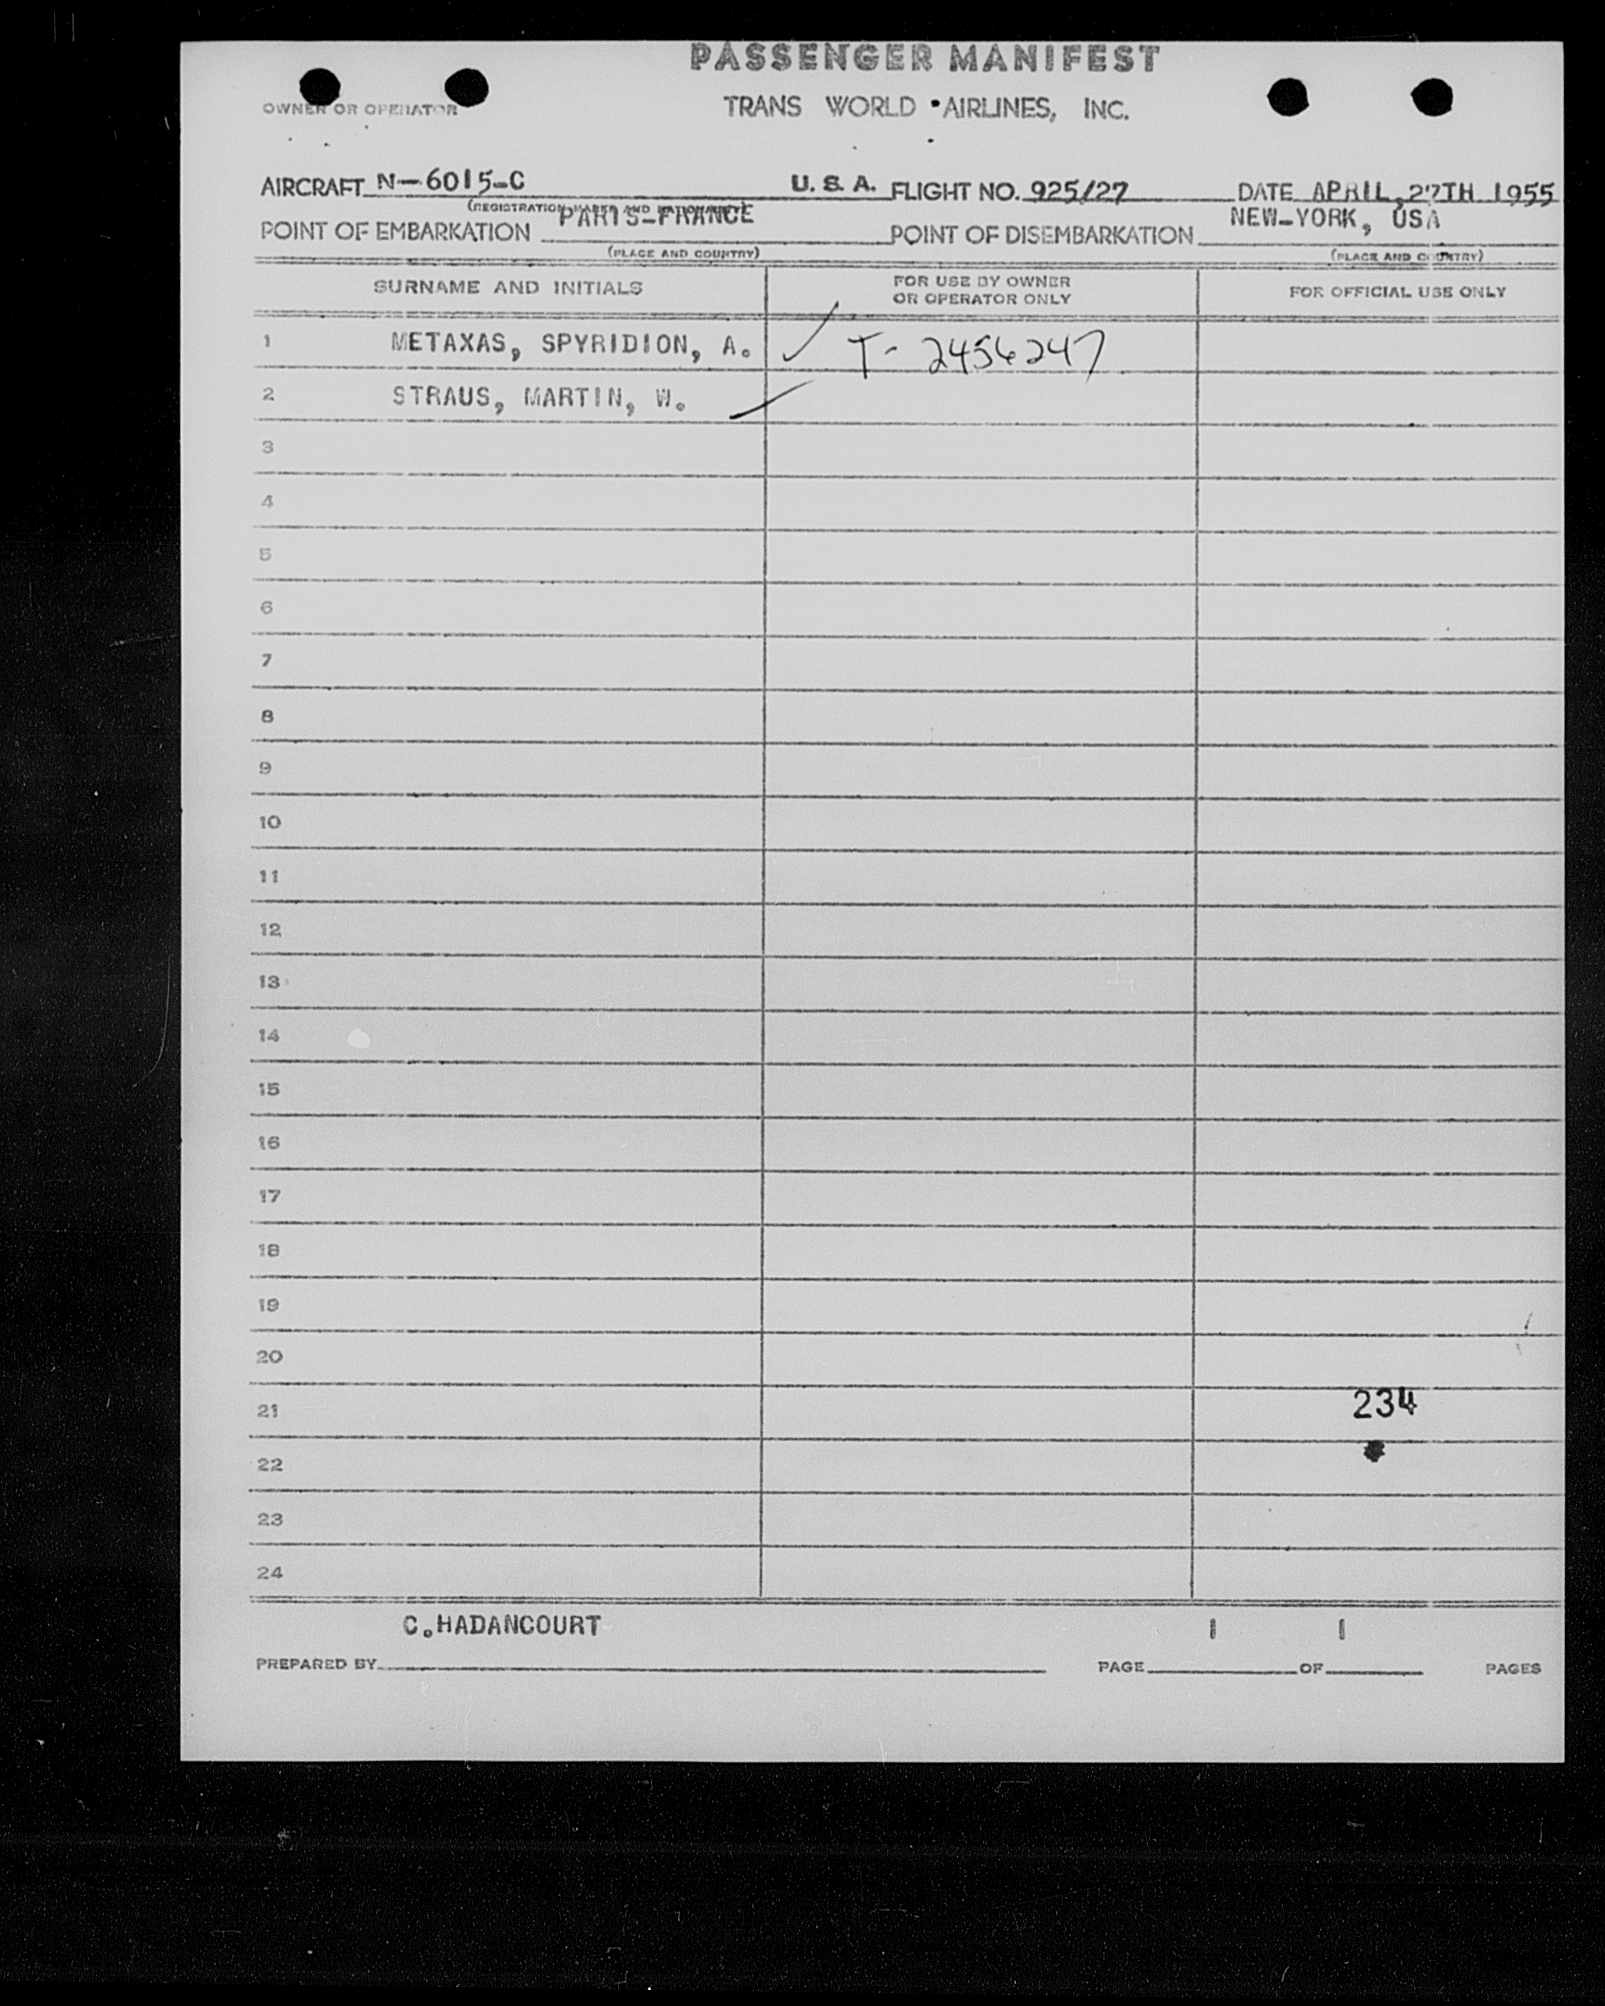 PASSENGER MANIFEST
OWNER OR OPERATOR TRANS WORLD AIRLINES, INC.
AIRCRAFT N-6015-C U. S. A. FLIGHT NO. 925/27 DATE APRIL, 27TH 1955
(REGISTRATION MARKS AND NATIONALITY)
POINT OF EMBARKATION PARIS-FRANCE POINT OF DISEMBARKATION NEW-YORK, USA
(PLACE AND COUNTRY) (PLACE AND COUNTRY)
SURNAME AND INITIALS FOR USE BY OWNER OR OPERATOR ONLY FOR OFFICIAL USE ONLY
1 METAXAS, SPYRIDION, A. T- 2456247
2 STRAUS, MARTIN, W.
3
4
5
6
7
8
9
10
11
12
13
14
15
16
17
18
19
20
21 234
22
23
24
C.HADANCOURT 1 1
PREPARED BY PAGE OF PAGES